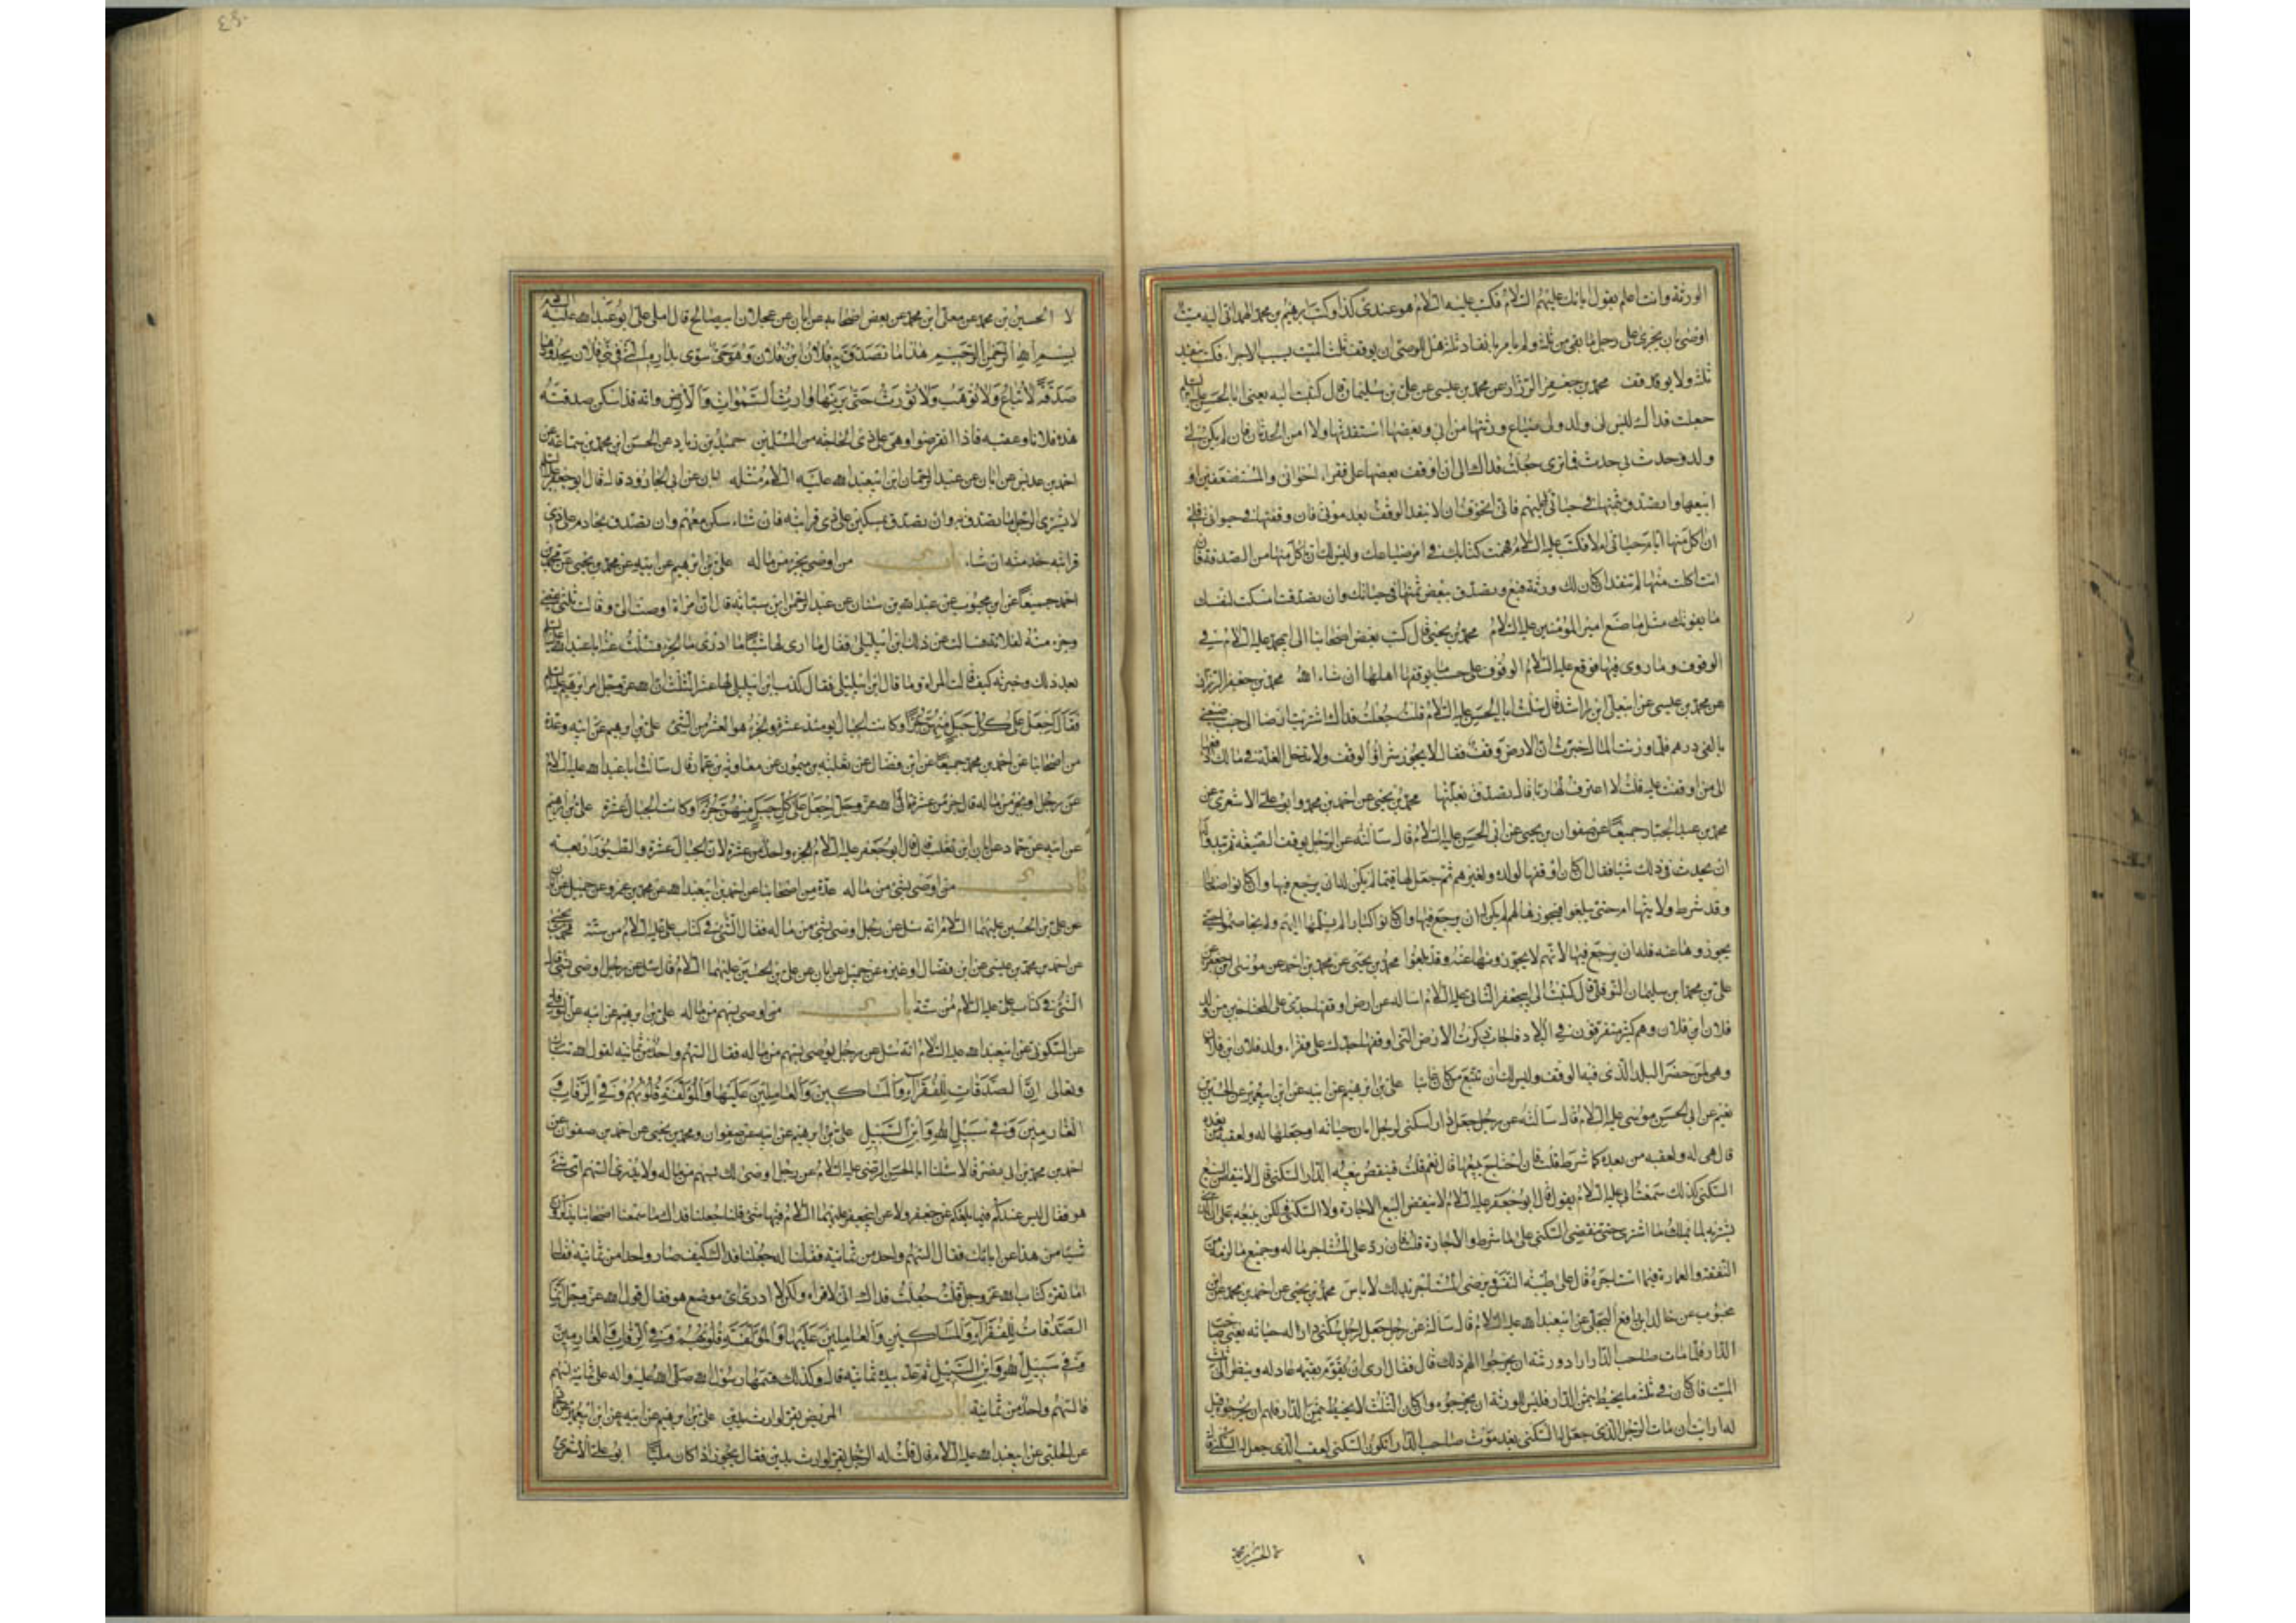 الورثة وانت اعلم بقول ابائك عليهم السلام فكتب عليه السلام هو عندى كذا وكتب ابرهيم بن محمد الهمدانى اليه ميت
اوصى بان يجرى على رجل ما بقى من ثلثه ولم يامر بانفاد ثلثه هل للوصى ان يوقف ثلث الميت بسبب الاجراء فكتب ينفد
ثلثه ولا يوقف محمد بن جعفر الرزاز عن محمد بن عيسى عن على بن سليمان قال كتبت اليه يعنى ابا الحسن عليه السلام
جعلت فداك ليس لى ولد ولى ضياع ورثتها من ابى وبعضها استفدتها ولا امن الحدثان فان لم يكن لى
ولد وحدث بى حدث فما ترى جعلت فداك الى ان اوقف بعضها على فقراء اخوانى والمستضعفين او
ابيعها واتصدق بثمنها فى حياتى عليهم فانى اتخوف ان لا ينفد الوقف بعد موتى فان وقفتها فى حيوتى فلى
ان اكل منها ايام حياتى ام لا فكتب عليه السلام فهمت كتابك فى امر ضياعك وليس لك ان تاكل منها من الصدقة فان
انت اكلت منها لم تنفد ان كان لك ورثة فبع وتصدق ببعض ثمنها فى حياتك وان تصدقت امسكت لنفسك
ما يقوتك مثل ما صنع امير المؤمنين عليه السلام محمد بن يحيى قال كتب بعض اصحابنا الى ابى محمد عليه السلام فى
الوقوف وما روى فيها فوقع عليه السلام الوقوف على حسب ما يوقفها اهلها ان شاء الله محمد بن جعفر الرزاز
عن محمد بن عيسى عن ابى على ابن راشد قال سئلت ابا الحسن عليه السلام قلت جعلت فداك اشتريت ارضا الى جنب ضيعتى
بالفى درهم فلما وزنت المال خبرت ان الارض وقف فقال لا يجوز شراء الوقف ولا تدخل الغلة فى مالك ادفعها
الى من اوقفت عليه قلت لا اعرف لها ربا قال تصدق بغلتها محمد بن يحيى عن احمد بن محمد وابو على الاشعرى عن
محمد بن عبد الجبار جميعا عن صفوان بن يحيى عن ابى الحسن عليه السلام قال سالته عن الرجل يوقف الضيعة ثم يبدو له
ان يحدث فى ذلك شيئا فقال ان كان اوقفها لولده ولغيرهم ثم جعل لها قيما لم يكن له ان يرجع فيها وان كانوا صغارا
وقد شرط ولايتها لهم حتى يبلغوا فيحوزها لهم لم يكن له ان يرجع فيها وان كانوا كبارا لم يسلمها اليهم ولم يخاصموا حتى
يحوزوها عنه فله ان يرجع فيها لانهم لا يحوزونها عنه وقد بلغوا محمد بن يحيى عن محمد بن احمد عن موسى بن جعفر عن
على بن محمد ابن سليمان النوفلى قال كتبت الى ابى جعفر الثانى عليه السلام اساله عن ارض اوقفها جدى على المحتاجين من ولد
فلان ابن فلان وهم كثير متفرقون فى البلاد فاجاب ذكرت الارض التى اوقفها جدك على فقراء ولد فلان ابن فلان
وهى لمن حضر البلد الذى فيه الوقف وليس لك ان تتبع من كان غائبا على بن ابرهيم عن ابيه عن ابن ابى عمير عن الحسين بن
نعيم عن ابى الحسن موسى عليه السلام قال سالته عن رجل جعل دار السكنى لرجل ابان حياته او جعلها له ولعقبه من بعده
قال هى له ولعقبه من بعده كما شرط قلت فان احتاج يبيعها قال نعم قلت فينقض بيعه الدار السكنى قال لا ينقض البيع
السكنى كذلك سمعت ابى عليه السلام يقول قال ابو جعفر عليه السلام لا ينقض البيع الاجارة ولا السكنى ولكن يبيعه على ان الذى
يشتريه لا يملك ما اشترى حتى تنقضى السكنى على ما شرط والاجارة قلت فان رد على المستاجر ماله وجميع ما لزمه من
النفقة والعمارة فيما استاجره قال على طيبة النفس ويرضى المستاجر بذلك لا باس محمد بن يحيى عن احمد بن محمد عن ابن
محبوب عن خالد بن رافع البجلى عن ابى عبد الله عليه السلام قال سالته عن رجل جعل لرجل سكنى دار له حياته يعنى صاحب
الدار فلما مات صاحب الدار اراد ورثته ان يخرجوه الهم ذلك قال فقال ارى ان تقوم بقيمة عادلة وينظر الى ثلث
الميت فان كان فى ثلثه ما يحيط بثمن الدار فليس للورثة ان يخرجوه وان كان الثلث لا يحيط بثمن الدار فلهم ان يخرجوه قيل
له ارايت ان مات الرجل الذى جعل له السكنى بعد موت صاحب الدار اتكون السكنى لعقب الذى جعل له السكنى قال
لا الحسين بن محمد عن معلى ابن محمد عن بعض اصحابه عن ابان عن عجلان ابى صالح قال املى على ابو عبد الله عليه السلام
بسم الله الرحمن الرحيم هذا ما تصدق به فلان ابن فلان وهو حى سوى بداره التى فى بنى فلان بحدودها
صدقة لا تباع ولا توهب ولا تورث حتى يرثها وارث السموات والارض وانه قد اسكن صدقته
هذه فلانا وعقبه فاذا انقرضوا وهى على ذى الحاجة من المسلمين حميد بن زياد عن الحسن ابن محمد بن سماعة عن
احمد بن عديس عن ابان عن عبد الرحمان ابن ابى عبد الله عليه السلام مثله ابان عن ابى الجارود قال قال ابو جعفر عليه السلام
لا يشترى الرجل ما تصدق به وان تصدق بمسكن على ذى قرابته فان شاء سكن معهم وان تصدق بخادم على ذى
قرابته خدمته ان شاء باب من اوصى بجزء من ماله على بن ابرهيم عن ابيه ومحمد بن يحيى عن محمد بن
احمد جميعا عن ابن محبوب عن عبد الله بن سنان عن عبد الرحمن ابن سيابة قال ان امراة اوصت الى وقالت ثلثى
وجزء منه لفلانة فسالت عن ذلك ابن ابى ليلى فقال ما ارى لها شيئا ما ادرى ما الجزء فسئلت عنه ابا عبد الله عليه السلام
بعد ذلك وخبرته كيف قالت المراة وما قال ابن ابى ليلى فقال كذب ابن ابى ليلى لها عشر الثلث ان الله عز وجل امر ابرهيم عليه السلام
فقال اجعل على كل جبل منهن جزءا وكانت الجبال يومئذ عشرة والجزء هو العشر من الشئ على بن ابرهيم عن ابيه وعدة
من اصحابنا عن احمد بن محمد جميعا عن ابن فضال عن ثعلبة بن ميمون عن معاوية بن عمار قال سالت ابا عبد الله عليه السلام
عن رجل اوصى بجزء من ماله قال جزء من عشرة قال الله عز وجل اجعل على كل جبل منهن جزءا وكانت الجبال عشرة على بن ابرهيم
عن ابيه عن حماد عن ابان ابن تغلب قال قال ابو جعفر عليه السلام الجزء واحد من عشرة لان الجبال عشرة والطيور اربعة
باب من اوصى بشئ من ماله عدة من اصحابنا عن احمد بن ابى عبد الله عن محمد بن عمرو عن جميل عن ابان
عن على بن الحسين عليهما السلام انه سئل عن رجل اوصى بشئ من ماله فقال الشئ فى كتاب على عليه السلام من ستة محمد بن يحيى
عن احمد بن محمد بن عيسى عن ابن فضال او غيره عن جميل عن ابان عن على بن الحسين عليهما السلام قال سئل عن رجل اوصى بشئ قال
الشئ فى كتاب على عليه السلام من ستة باب من اوصى بسهم من ماله على بن ابرهيم عن ابيه عن النوفلى
عن السكونى عن ابى عبد الله عليه السلام انه سئل عن رجل يوصى بسهم من ماله فقال السهم واحد من ثمانية لقول الله تبارك
وتعالى انما الصدقات للفقراء والمساكين والعاملين عليها والمؤلفة قلوبهم وفى الرقاب و
الغارمين وفى سبيل الله وابن السبيل على بن ابرهيم عن ابيه عن صفوان ومحمد بن يحيى عن احمد عن صفوان عن
احمد بن محمد بن ابى نصر قالا سئلنا ابا الحسن الرضى عليه السلام عن رجل اوصى لك بسهم من ماله ولا يدرى السهم اى شئ
هو فقال ليس عندكم فيما بلغكم عن جعفر ولا عن ابى جعفر عليهما السلام فيها شئ قلنا جعلنا فداك ما سمعنا اصحابنا يذكرون
شيئا من هذا عن ابائك فقال السهم واحد من ثمانية فقلنا له جعلنا فداك كيف صار واحدا من ثمانية فقال
اما تقرء كتاب الله عز وجل قلت جعلت فداك انى لاقراه ولكن لا ادرى اى موضع هو فقال قول الله عز وجل انما
الصدقات للفقراء والمساكين والعاملين عليها والمؤلفة قلوبهم وفى الرقاب والغارمين
وفى سبيل الله وابن السبيل ثم عقد بيده ثمانية قال وكذلك قسمها رسول الله صلى الله عليه واله على ثمانية اسهم
فالسهم واحد من ثمانية باب المريض يقر لوارث بدين على بن ابرهيم عن ابيه عن ابن ابى عمير عن
عن الحلبى عن ابى عبد الله عليه السلام قال قلت له الرجل يقر لوارث بدين فقال يجوز اذا كان مليا ابو على الاشعرى